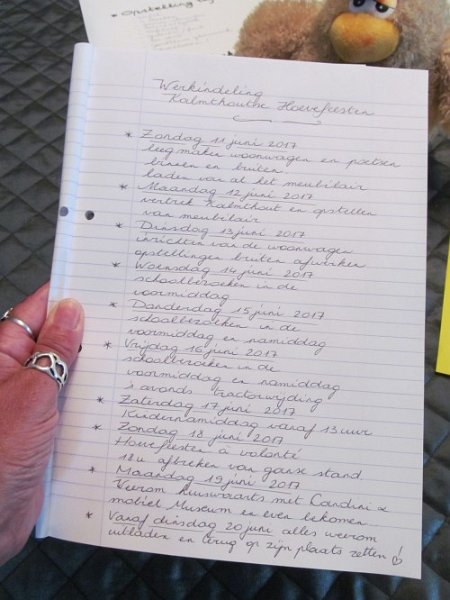 Opstelling
Werkindeling
Kalmthoutse Hoevefeesten
* Zondag 11 juni 2017
leegmaken woonwagen en poetsen
binnen en buiten.
laden van al het meubilair
* Maandag 12 juni 2017
vertrek Kalmthout en opstellen
van meubilair
* Dinsdag 13 juni 2017
inrichten van de woonwagen
opstellingen buiten afwerken
* Woensdag 14 juni 2017
schoolbezoeken in de
voormiddag
* Donderdag 15 juni 2017
schoolbezoeken in de
voormiddag en namiddag
* Vrijdag 16 juni 2017
schoolbezoeken in de
voormiddag en namiddag
's avonds tractorwijding
* Zaterdag 17 juni 2017
Kindernamiddag vanaf 13 uur
* Zondag 18 juni 2017
Hoevefeesten à volonté
18u afbreken van ganse stand
* Maandag 19 juni 2017
Weerom huiswaarts met Candini &
mobiel Museum en even bekomen...
* Vanaf dinsdag 20 juni alles weerom
uitladen en terug op zijn plaats zetten!